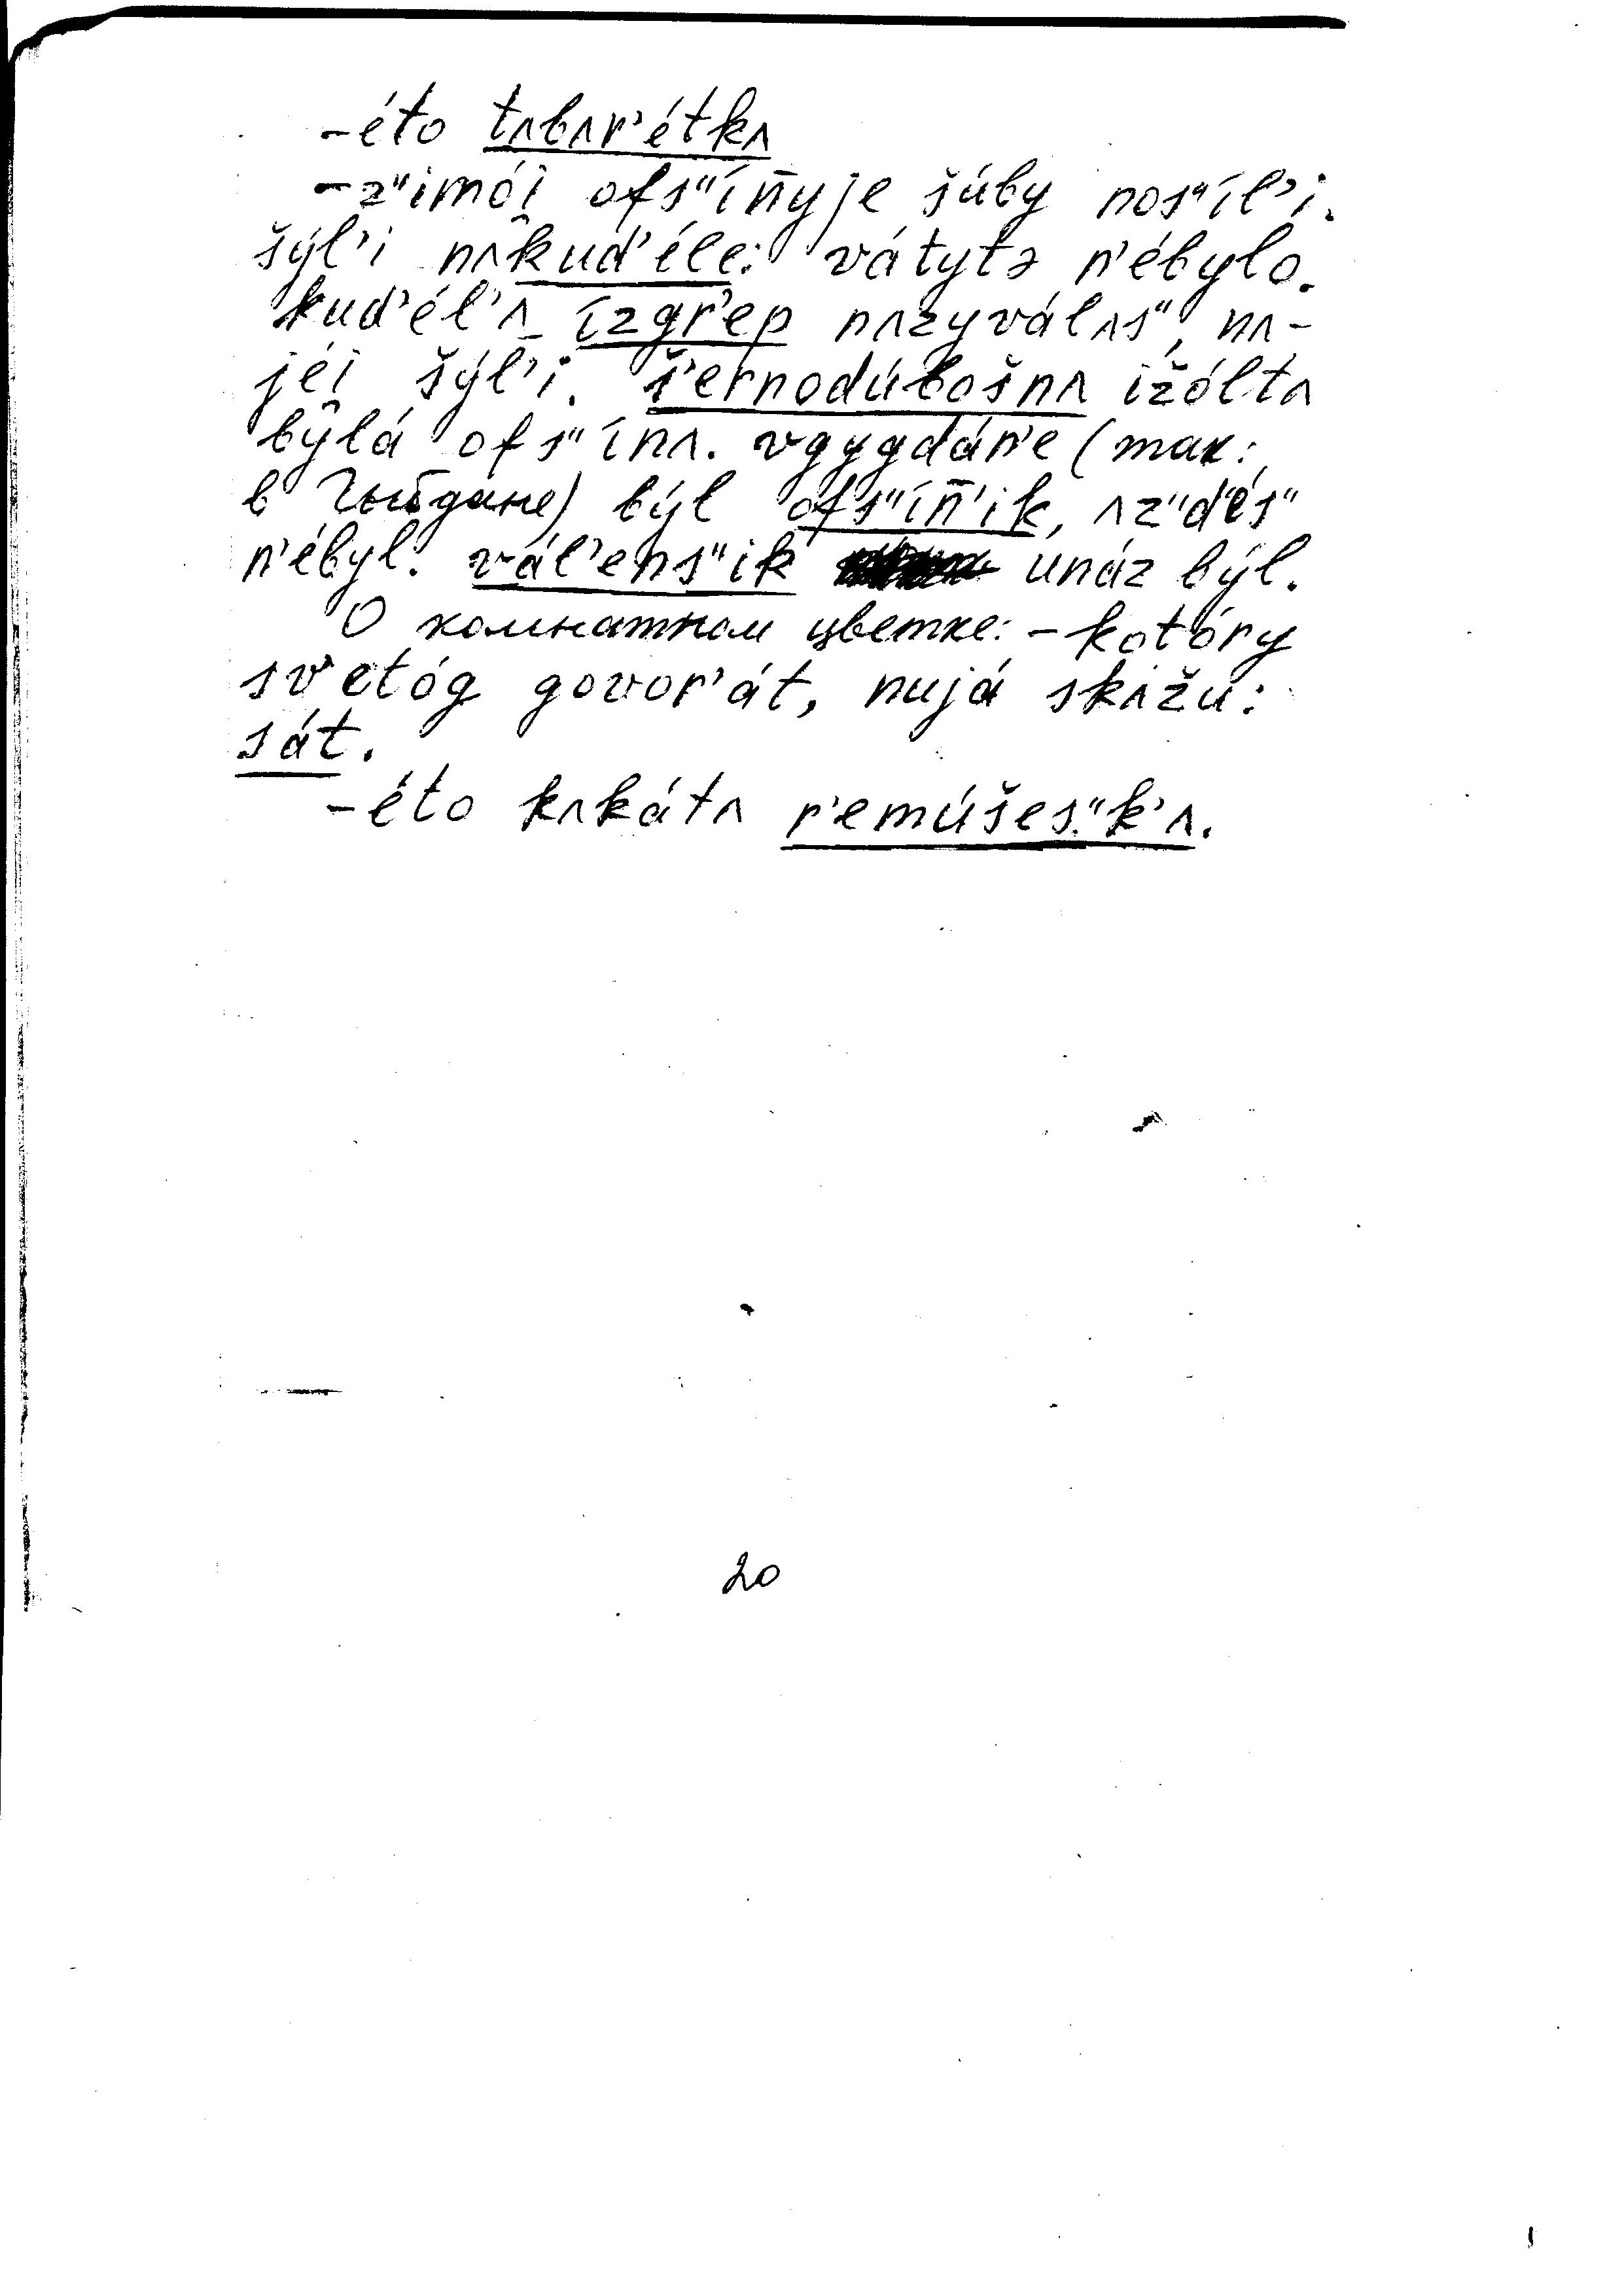 –éto tʌbʌr’étkʌ
–z"imói̯ ofs"ín̄yje šúby nos"íl’i.
šýl’i nʌkud’éle: vátytə n’ébylo.
kud’él’ʌ ízgr’ep nʌzyválʌs", nʌ–
jéi̯ šýl’i. š’ernodúbošnʌ ižóltʌ
bylá ofs"ínʌ. vgygdán’e (так:
в Гыгдане) býl ofs"ín̄’ik, ʌz"d’és"
n’ébyl. vál’ens"ik unáz býl.
О комнатном цветке: –kotóry
sv’etóg govor’át, nujá skʌžu:
sát.
–éto kʌkátʌ r’emúšes"k’ʌ.
20